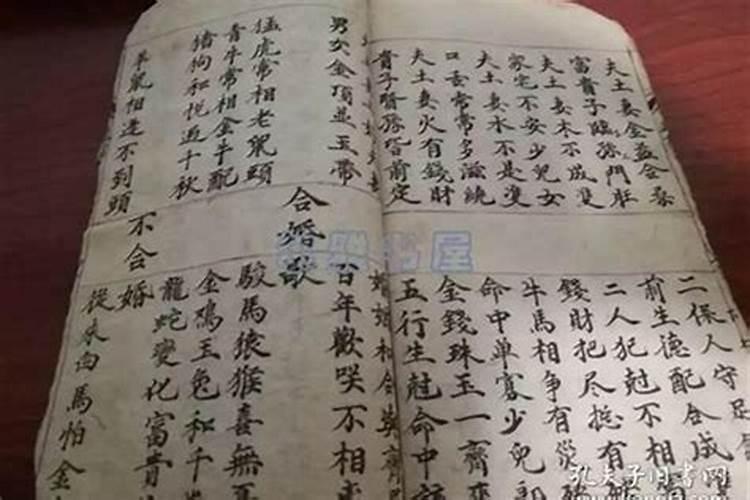 夫土妻金益合
富貴子臨孫門
夫土妻木不成雙
家宅不安少兒女
夫土妻水不是雙
口舌常常多滋繞
夫土妻火有錢財
貴子賢孫皆前定
二保人守足
前生德配合成
二人犯尅不相
錢財把尽挺有
牛馬相争有災
命中单寡少兒郎
金錢珠玉一齊來
五行生尅命中
婚姻和合
男女金頂並玉帶
猛虎常相老鼠頭
青牛常相金牛配
猪狗和悦过千秋
合婚歌
百年歡咲不相
駿馬猿猴喜無
金鸡玉兔和千
龍蛇變化富貴
羊鼠相逢不到頭
不合婚
從来白馬怕金
孔夫子旧书网